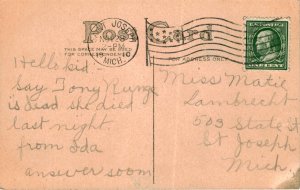 Post Card
THIS SPACE MAY BE USED
FOR CORRESPONDENCE
FOR ADDRESS ONLY
ST. JOSEPH
PM
10
MICH.
Hello kid
Say Tony Runge
is dead she died
last night.
from Ida
answer soon
Miss Matie
Lambrecht
503 State St
St Joseph
Mich.